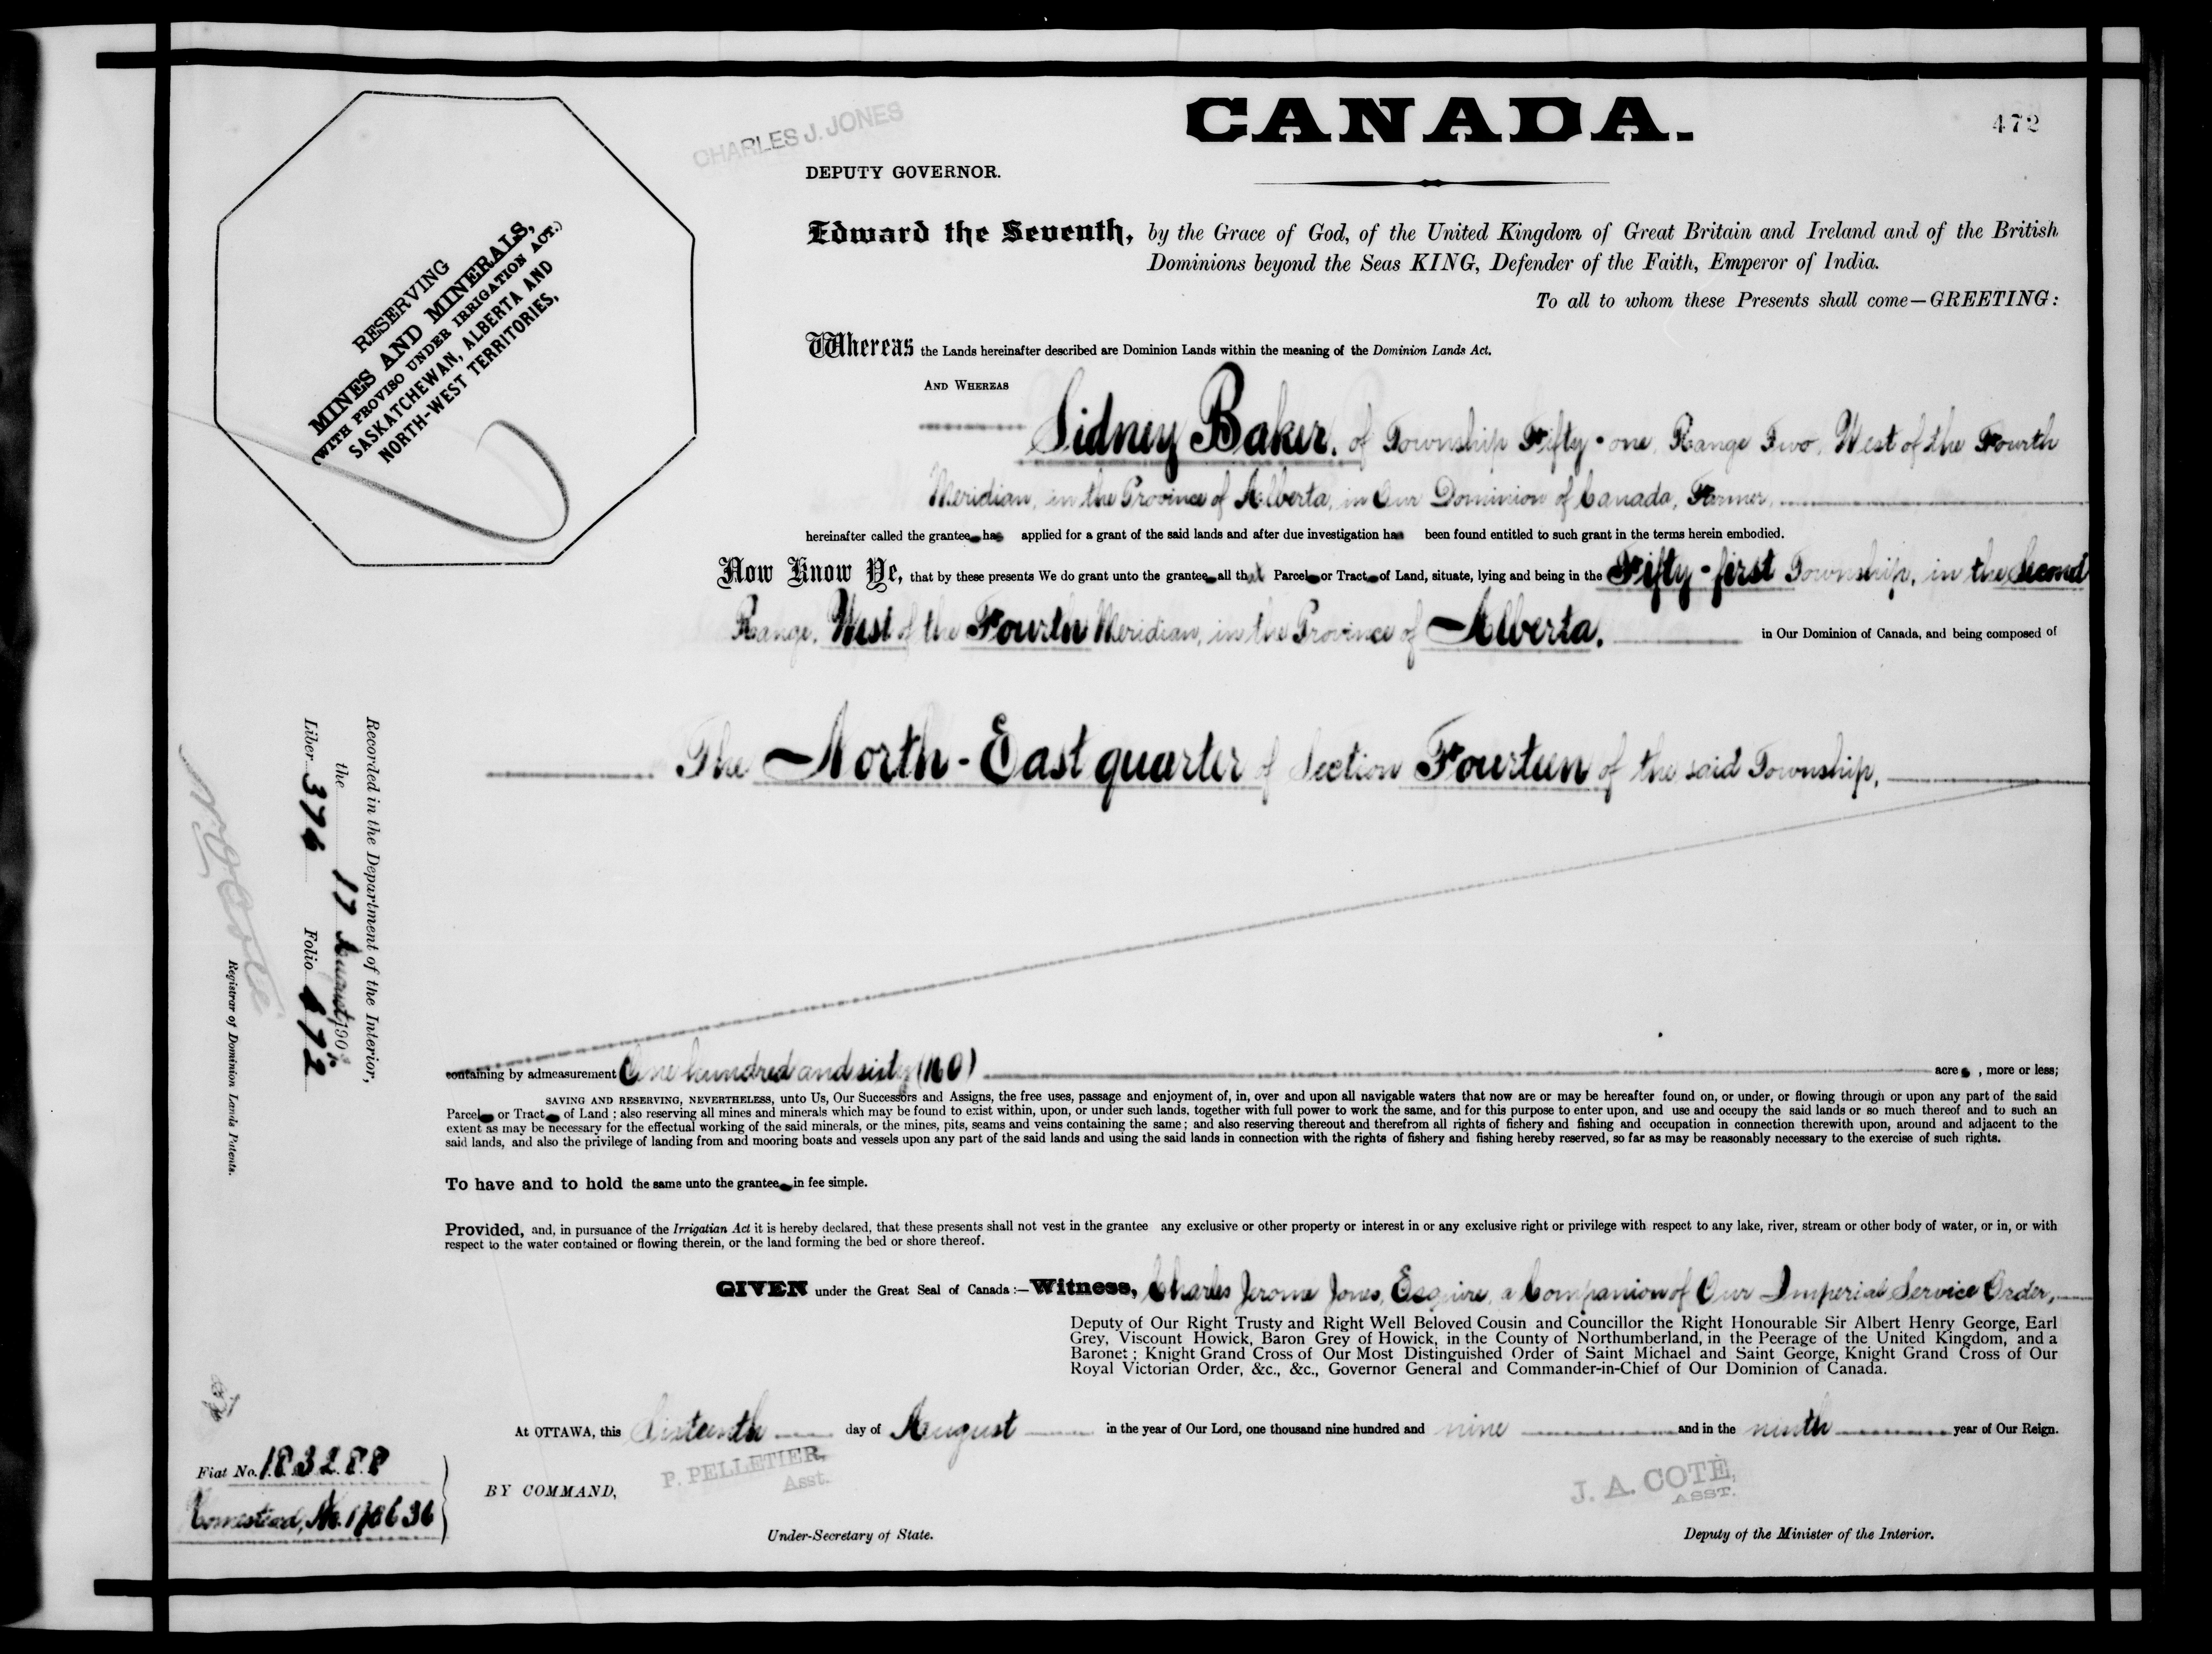 CANADA.
472
CHARLES J. JONES
DEPUTY GOVERNOR.
RESERVING
MINES AND MINERALS,
(WITH PROVISO UNDER IRRIGATION ACT.)
SASKATCHEWAN, ALBERTA AND
NORTH-WEST TERRITORIES,
Edward the Seventh, by the Grace of God, of the United Kingdom of Great Britain and Ireland and of the British
Dominions beyond the Seas KING, Defender of the Faith, Emperor of India.
To all to whom these Presents shall come—GREETING:
Whereas the Lands hereinafter described are Dominion Lands within the meaning of the Dominion Lands Act.
AND WHEREAS
Sidney Baker, of Township Fifty-one, Range Two, West of the Fourth
Meridian, in the Province of Alberta, in Our Dominion of Canada, Farmer,
hereinafter called the grantee has applied for a grant of the said lands and after due investigation has been found entitled to such grant in the terms herein embodied.
Now Know Ye, that by these presents We do grant unto the grantee all that Parcel or Tract of Land, situate, lying and being in the Fifty-first Township, in the Second
Range, West of the Fourth Meridian, in the Province of Alberta, in Our Dominion of Canada, and being composed of
The North-East quarter of Section Fourteen of the said Township,
Recorded in the Department of the Interior,
the 17 August 190
Liber 376 Folio 472
Registrar of Dominion Lands Patents.
containing by admeasurement One hundred and sixty (160) acres, more or less;
SAVING AND RESERVING, NEVERTHELESS, unto Us, Our Successors and Assigns, the free uses, passage and enjoyment of, in, over and upon all navigable waters that now are or may be hereafter found on, or under, or flowing through or upon any part of the said
Parcel or Tract of Land; also reserving all mines and minerals which may be found to exist within, upon, or under such lands, together with full power to work the same, and for this purpose to enter upon, and use and occupy the said lands or so much thereof and to such an
extent as may be necessary for the effectual working of the said minerals, or the mines, pits, seams and veins containing the same; and also reserving thereout and therefrom all rights of fishery and fishing and occupation in connection therewith upon, around and adjacent to the
said lands, and also the privilege of landing from and mooring boats and vessels upon any part of the said lands and using the said lands in connection with the rights of fishery and fishing hereby reserved, so far as may be reasonably necessary to the exercise of such rights.
To have and to hold the same unto the grantee in fee simple.
Provided, and, in pursuance of the Irrigation Act it is hereby declared, that these presents shall not vest in the grantee any exclusive or other property or interest in or any exclusive right or privilege with respect to any lake, river, stream or other body of water, or in, or with
respect to the water contained or flowing therein, or the land forming the bed or shore thereof.
GIVEN under the Great Seal of Canada:—Witness, Charles Jerome Jones, Esquire, a Companion of Our Imperial Service Order,
Deputy of Our Right Trusty and Right Well Beloved Cousin and Councillor the Right Honourable Sir Albert Henry George, Earl
Grey, Viscount Howick, Baron Grey of Howick, in the County of Northumberland, in the Peerage of the United Kingdom, and a
Baronet; Knight Grand Cross of Our Most Distinguished Order of Saint Michael and Saint George, Knight Grand Cross of Our
Royal Victorian Order, &c., &c., Governor General and Commander-in-Chief of Our Dominion of Canada.
At OTTAWA, this Sixteenth day of August in the year of Our Lord, one thousand nine hundred and nine and in the ninth year of Our Reign.
P. PELLETIER,
Asst.
J. A. COTÉ,
ASST.
Fiat No. 183288
Homestead, No.
BY COMMAND,
Under-Secretary of State.
Deputy of the Minister of the Interior.